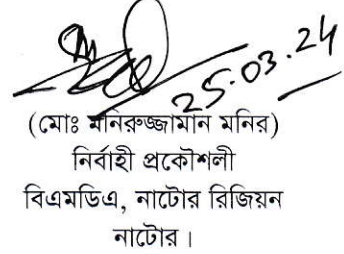 25.03.24
(মোঃ মনিরুজ্জামান মনির)
নির্বাহী প্রকৌশলী
বিএমডিএ, নাটোর রিজিয়ন
নাটোর।